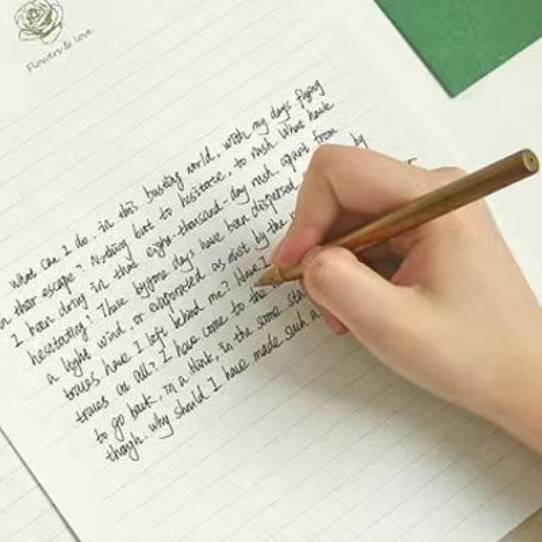 Flowers & Love
What can I do, in this bustling world, with my days flying
in their escape? Nothing but to hesitate, to rush. What have
I been doing in that eight-thousand-day rush, apart from
hesitating? Those bygone days have been dispersed by
a light wind, or evaporated as mist by the
traces have I left behind me? Have I
traces at all? I have come to the
to go back, in a blink, in the same sta
though. why should I have made such a